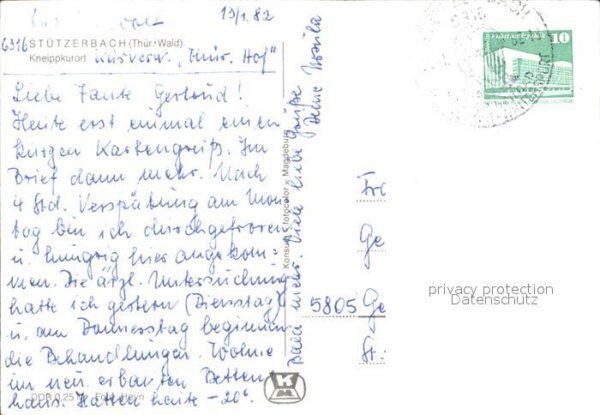 13/1. 82
6316 STÜTZERBACH (Thür. Wald)
Kneippkurort Kurverw. „Thür. Hof"
Liebe Tante Gertrud!
Heute erst einmal einen
kurzen Kartengruß. Im
Brief dann mehr. Nach
4 Std. Verspätung am Mon
tag bin ich durchgefroren
u. hungrig hier angekom-
men. Die ärztl. Untersuchung
hatte ich gestern (Dienstag)
u. am Donnerstag beginnen
die Behandlungen. Wohne
im neu erbauten Betten
haus. Hatten heute -20°.
Bald mehr. Viele liebe Grüße
Deine Ursula
Konsum Fotocolor Magdeburg
DDR 0,25 Foto: Heyn
KM
10
Fr
Ge
5805 Ge
St.:
privacy protection
Datenschutz